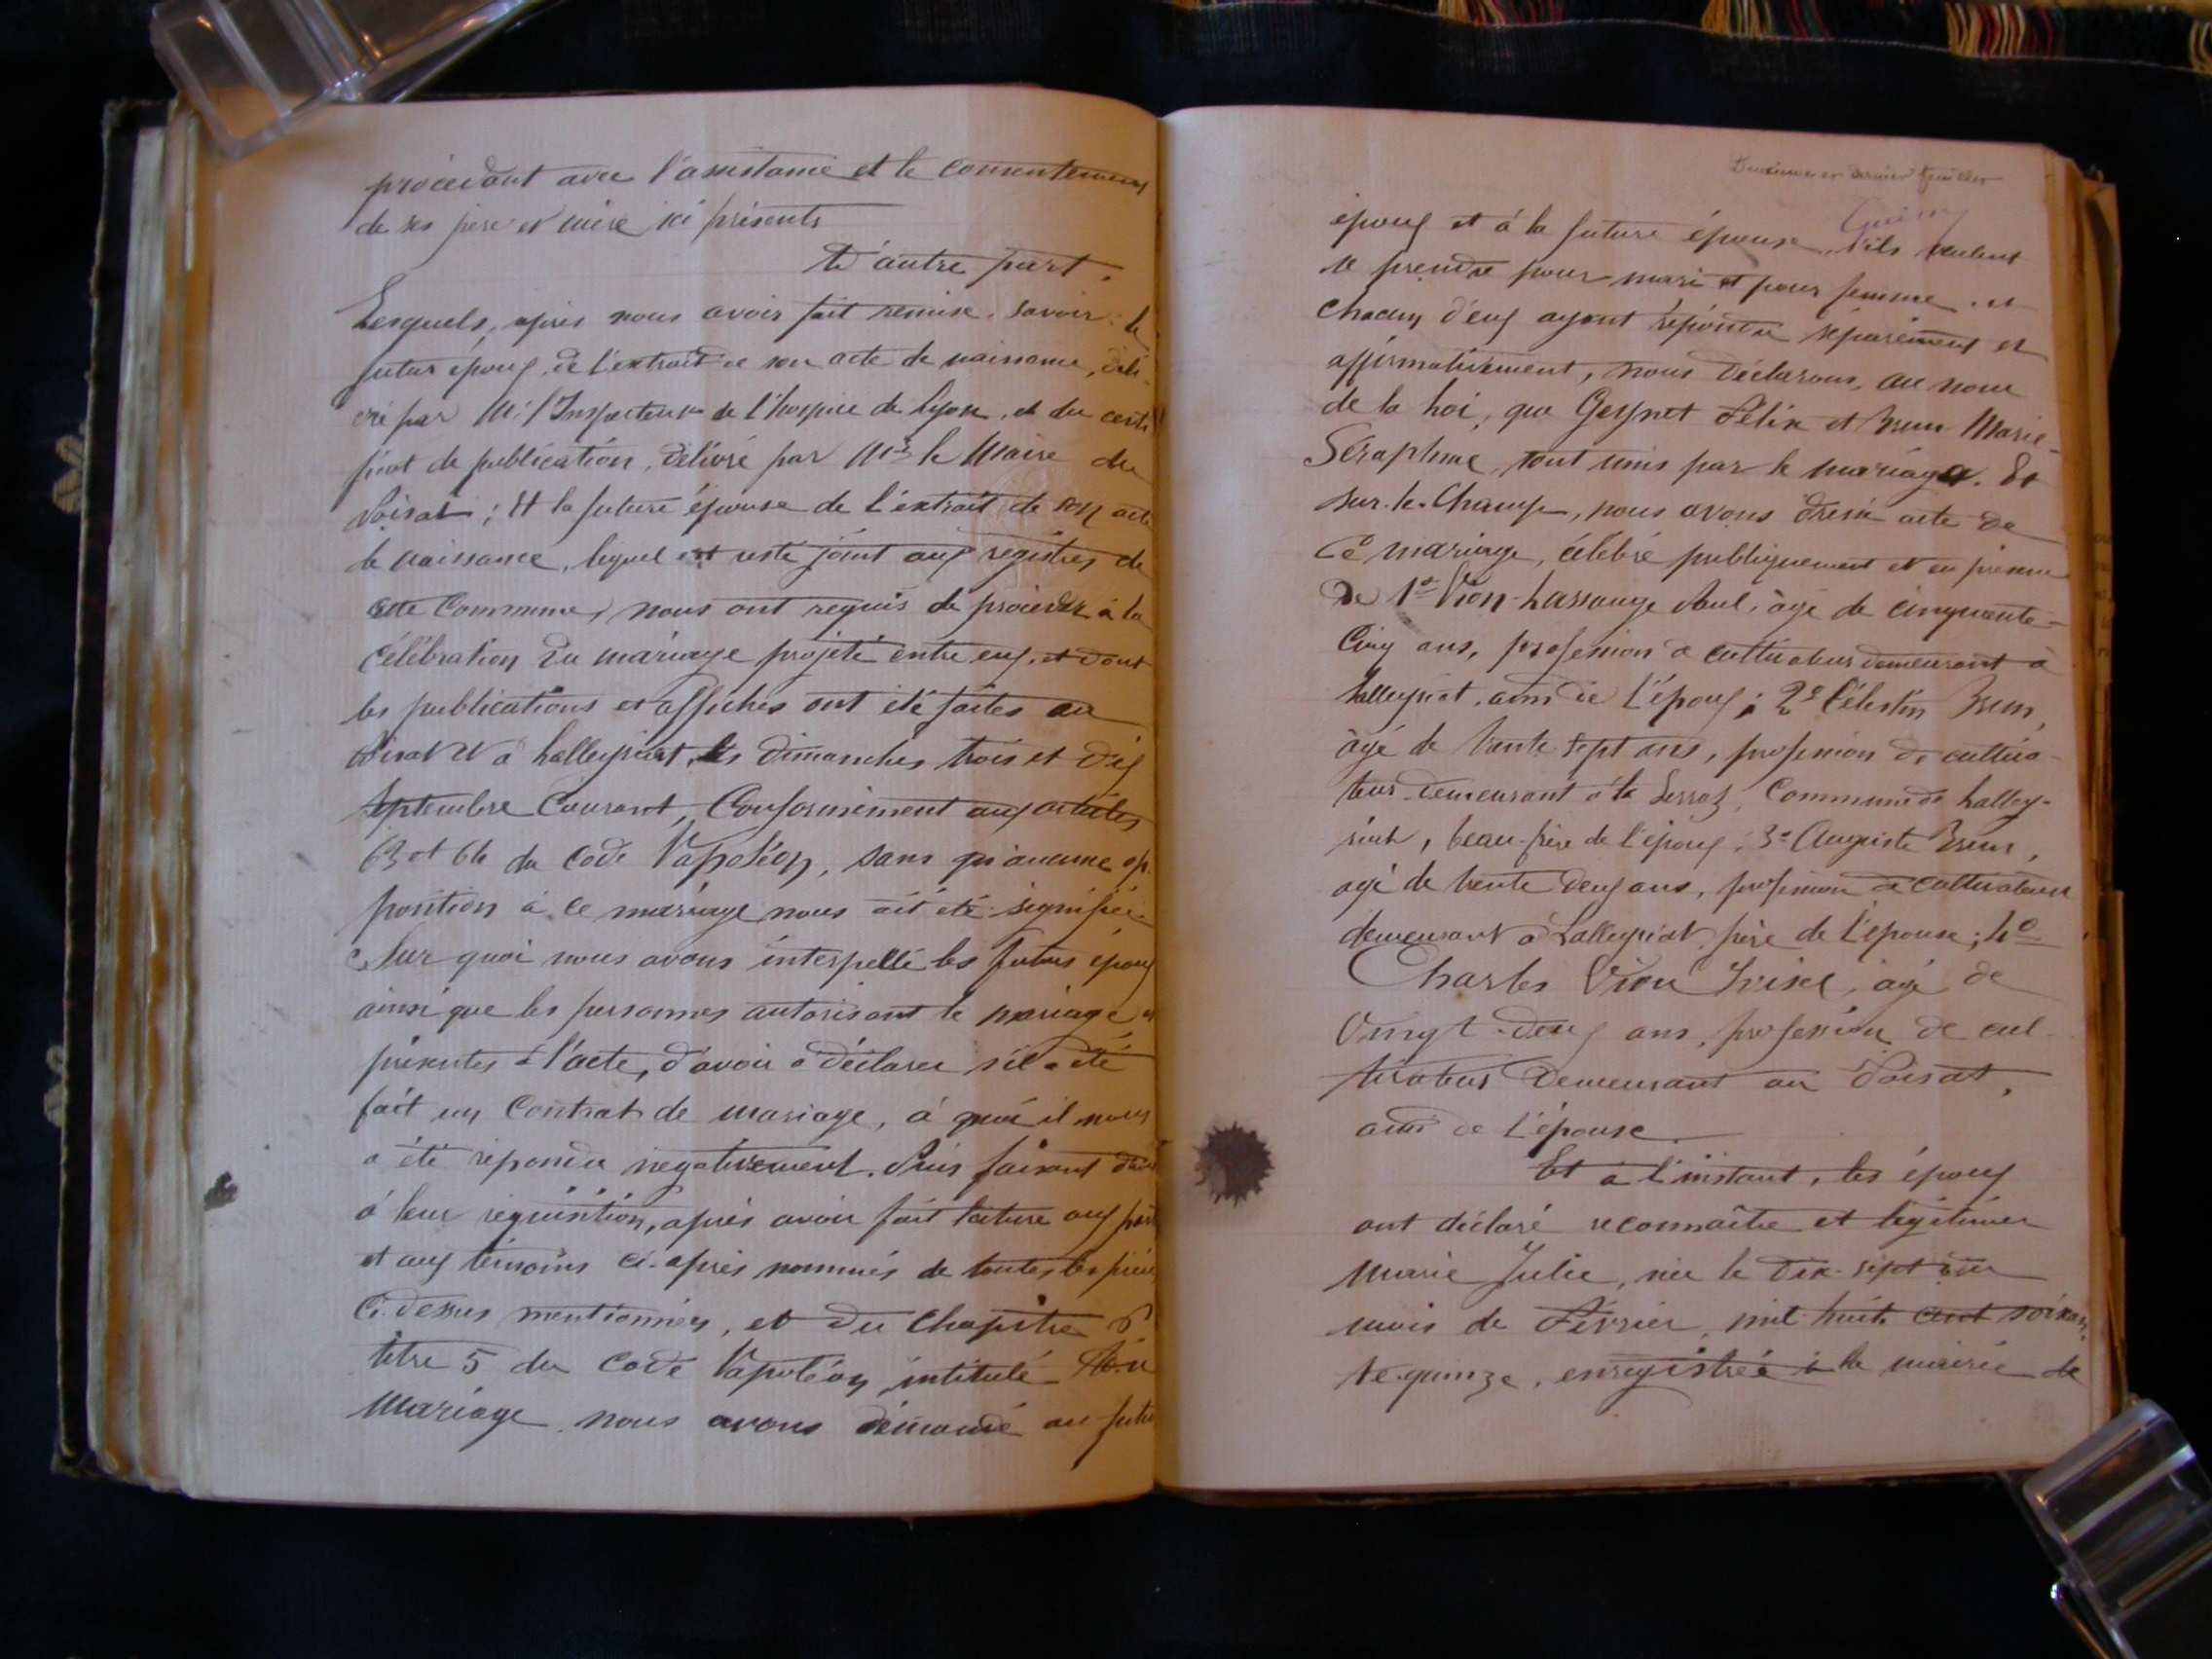 procédant avec l'assistance et le consentement
de ses père et mère ici présents
D'autre part.
Lesquels, après nous avoir fait remise, savoir: le
futur époux, de l'extrait de son acte de naissance, déli-
vré par Mr l'Inspecteur de l'hospice de Lyon, et du certi
ficat de publication, délivré par Mr le Maire du
Poizat; Et la future épouse de l'extrait de son acte
de naissance, lequel est resté joint aux registres de
cette Commune, nous ont requis de procéder à la
célébration du mariage projeté entre eux, et dont
les publications et affiches ont été faites au
Poizat et à Lalleyriat, les dimanches trois et dix
Septembre Courant, Conformément aux articles
63 et 64 du Code Napoléon, sans qu'aucune op-
position à ce mariage nous ait été signifiée.
Sur quoi nous avons interpellé les futurs époux
ainsi que les personnes autorisant le mariage et
présentes à l'acte, d'avoir à déclarer s'il a été
fait un Contrat de mariage, à quoi il nous
a été répondu négativement. Puis faisant droit
à leur réquisition, après avoir fait lecture aux parties
et aux témoins ci-après nommés de toutes les pièces
ci-dessus mentionnées, et du Chapitre 6
titre 5 du Code Napoléon, intitulé Du
Mariage nous avons demandé au futur
Deuxième et dernier feuillet
époux et à la future épouse, s'ils veulent
se prendre pour mari et pour femme, et
chacun d'eux ayant répondu séparément et
affirmativement, nous déclarons, au nom
de la Loi, que Geynet Félix et Brun Marie
Séraphine, sont unis par le mariage. Et
sur-le-Champ, nous avons dressé acte de
ce mariage, célébré publiquement et en présence
de 1º Vion Lassauge Paul, âgé de cinquante-
Cinq ans, profession de cultivateur demeurant à
Lalleyriat, ami de l'époux; 2º Célestin Brun,
âgé de trente sept ans, profession de cultiva-
teur demeurant à la Serraz, Commune de Lalley-
riat, beau-frère de l'époux; 3º Auguste Brun,
agé de trente deux ans, profession de cultivateur
demeurant à Lalleyriat, frère de l'épouse; 4º
Charles Vion âgé de
Vingt-deux ans, profession de cul-
tivateur demeurant au Poizat,
ami de l'épouse.
Et à l'instant, les époux
ont déclaré reconnaître et légitimer
Marie Julie, née le dix-sept du
mois de Février, mil huit cent soixan-
te-quinze, enregistrée à la mairie de